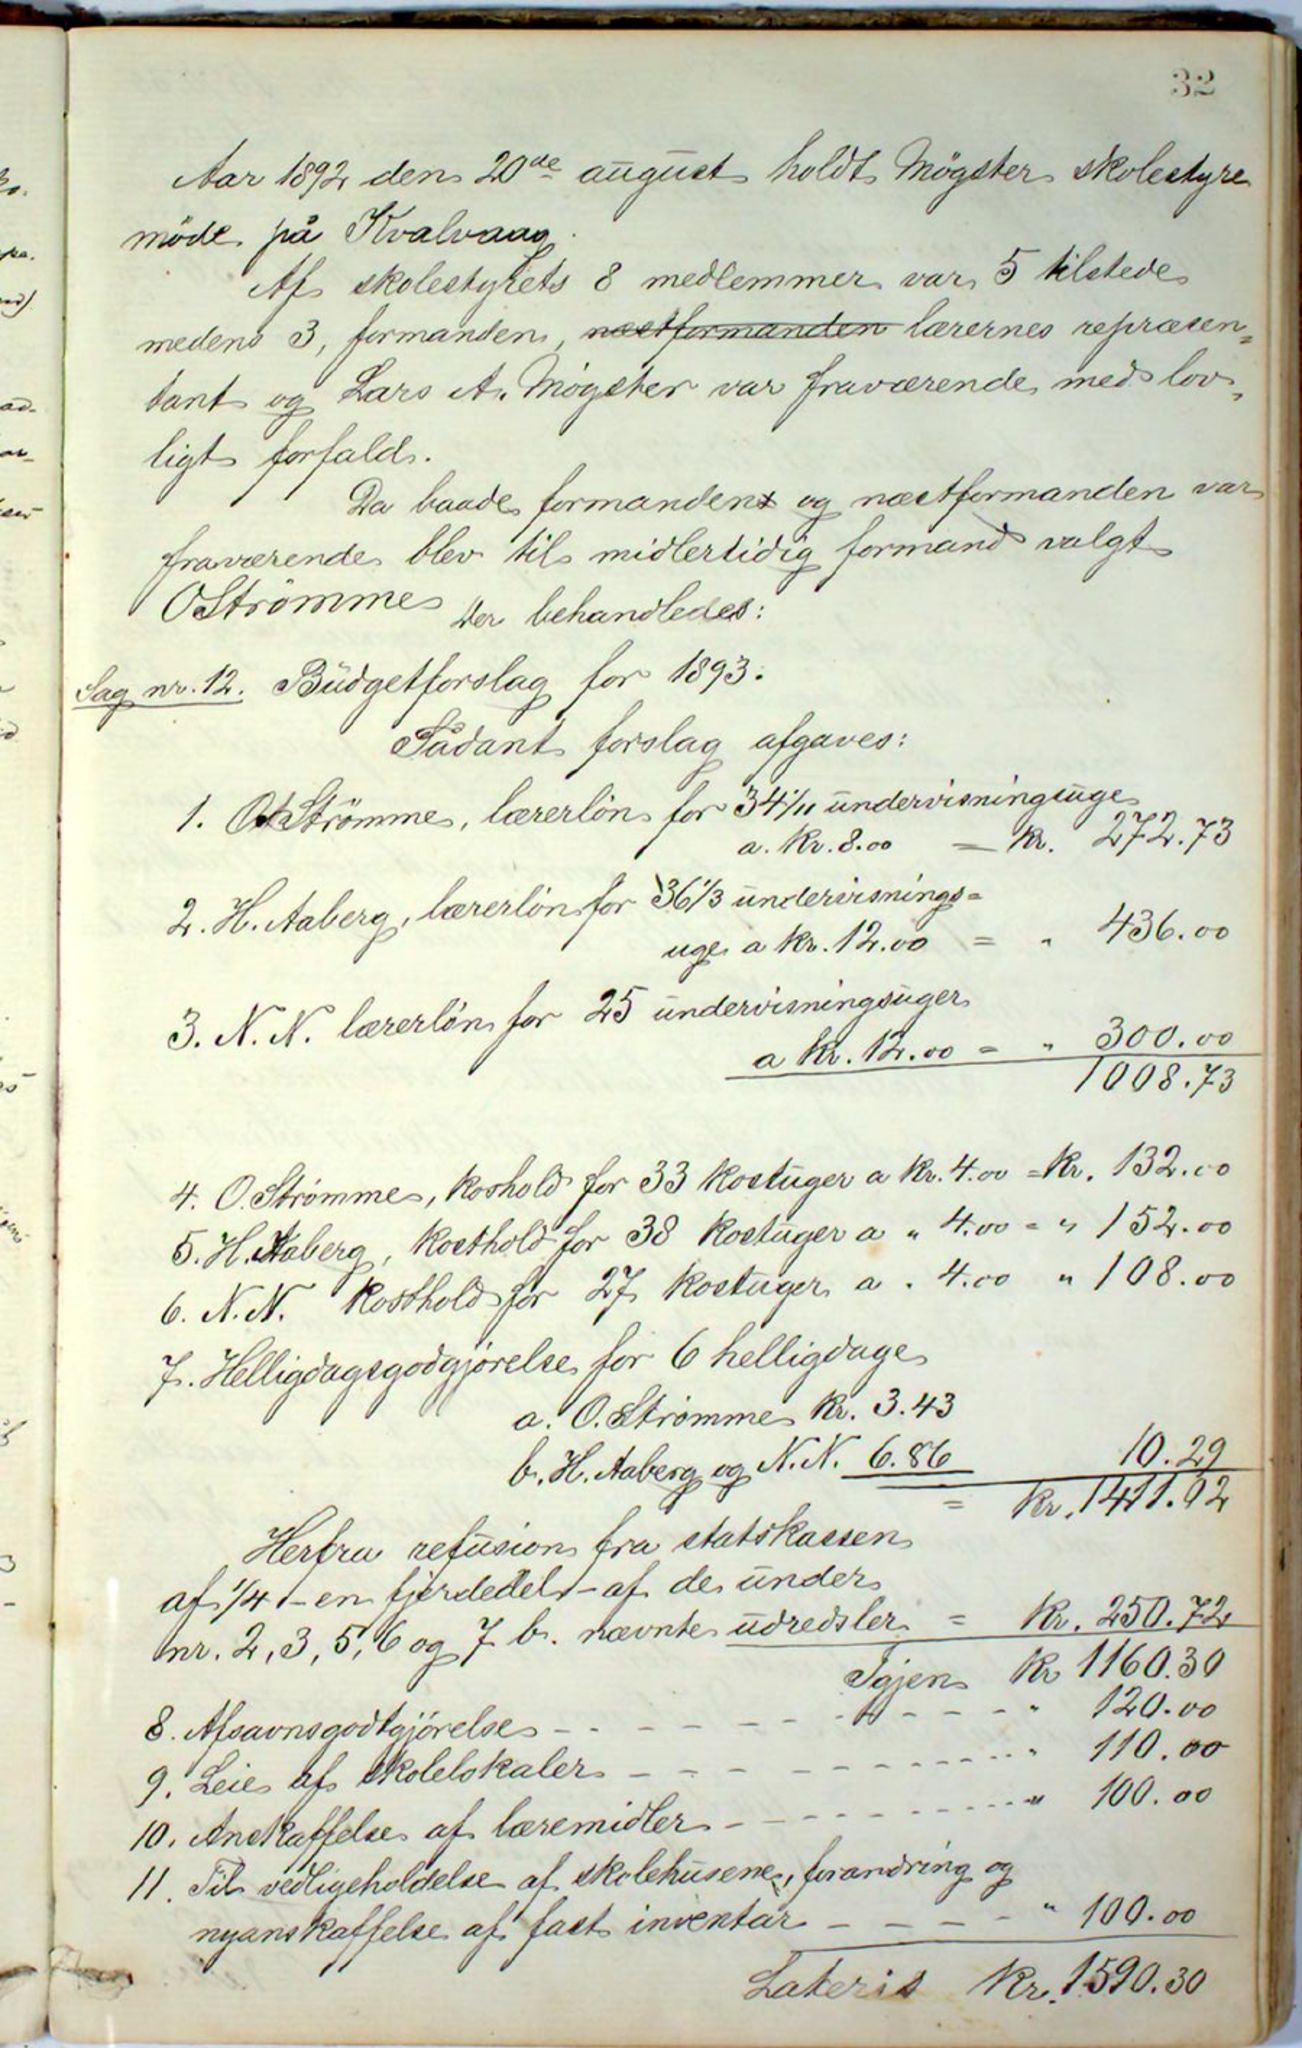 32
Aar 1892 den 20de august holdt Møgster skolestyre
møde på Kvalvaag.
Af skolestyrets 8 medlemmer var 5 tilstede
medens 3, formanden, næstformanden lærernes repræsen=
tant og Lars A. Møgster var fraværende med lov=
ligt forfald.
Da baade formanden og næstformanden var
fraværende blev til midlertidig formand valgt
O Strømme
Der behandledes:
Sag nr. 12. Budgetforslag for 1893.
Sådant forslag afgaves:
1. O Strömme, lærerløn for 34 1/11 undervisningsuge
a. kr. 8.00 = kr. 272.73
2. H. Aaberg, lærerløn for 36 1/3 undervisnings=
uge a kr. 12.00 = " 436.00
3. N. N. lærerløn for 25 undervisningsuger
a kr. 12.00 = " 300.00
1008.73
4. O. Strømme, koshold for 33 kostuger a kr. 4.00 = kr. 132.00
5. H. Aaberg, kosthold for 38 kostuger a " 4.00 = " 152.00
6. N. N. kosthold for 27 kostuger a " 4.00 " 108.00
7. Helligdagsgodgjørelse for 6 helligdage
a. O. Strømme kr. 3.43
b. H. Aaberg og N. N. 6.86 10.29
= kr. 1411.02
Herfra refusion fra statskassen
af 1/4 - en fjerdedel - af de under
nr. 2, 3, 5, 6 og 7 b. nævnte udredsler = kr. 250.72
Igjen kr 1160.30
8. Afsavnsgodtgjørelse - - - - - - - - - " 120.00
9. Leie af skolelokaler - - - - - - - - - " 110.00
10. Anskaffelse af læremidler - - - - - - - " 100.00
11. Til vedligeholdelse af skolehusene, forandring og
nyanskaffelse af fast inventar - - - - " 100.00
Lateris kr. 1590.30